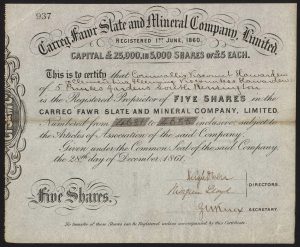 937
Carreg Fawr Slate and Mineral Company, Limited.
REGISTERED 1ST JUNE, 1860.
CAPITAL £25,000, IN 5,000 SHARES OF £5 EACH.
This is to certify that Cornwallis Viscount Hawarden
& Clementina Fleming Viscountess Hawarden
of 5 Princes Gardens South Kensington
is the Registered Proprietor of FIVE SHARES in the
CARREG FAWR SLATE AND MINERAL COMPANY, LIMITED,
Numbered from to inclusive, subject to
the Articles of Association of the said Company.
Given under the Common Seal of the said Company,
the 28th day of December 1861.
Five Shares.
Morgan Lloyd
DIRECTORS.
SECRETARY.
No transfer of these Shares can be Registered unless accompanied by this Certificate.